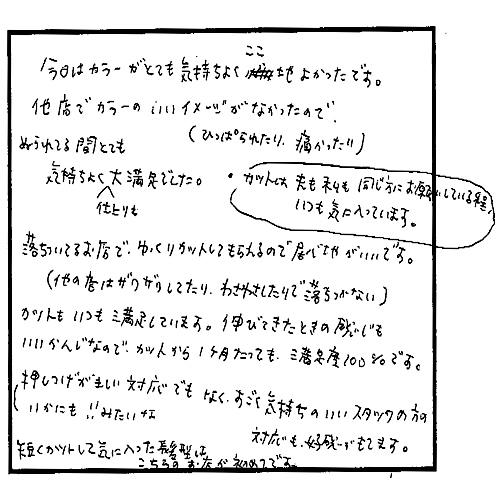 ここ
今日はカラーがとても気持ちよく 地よかったです。
他店でカラーのいいイメージがなかったので、
(ひっぱられたり、痛かったり)
ぬられてる間とても
気持ちよく大満足でした。
仕上りも
・カットは夫も私も同じ方にお願いしている程、
いつも気に入っています。
落ちついてるお店で、ゆっくりカットしてもらえるので居心地がいいです。
(他の店はガヤガヤしてたり、わさわさしたりで落ちつかない)
カットもいつも満足しています。伸びてきたときの感じも
いいかんじなので、カットから1ヶ月たっても、満足度100%です。
押しつけがましい対応でもなく、すごく気持ちのいいスタッフの方の
(いかにも!!みたいな
対応も、好感がもてます。
短くカットして気に入った髪型は
こちらのお店が初めてです。